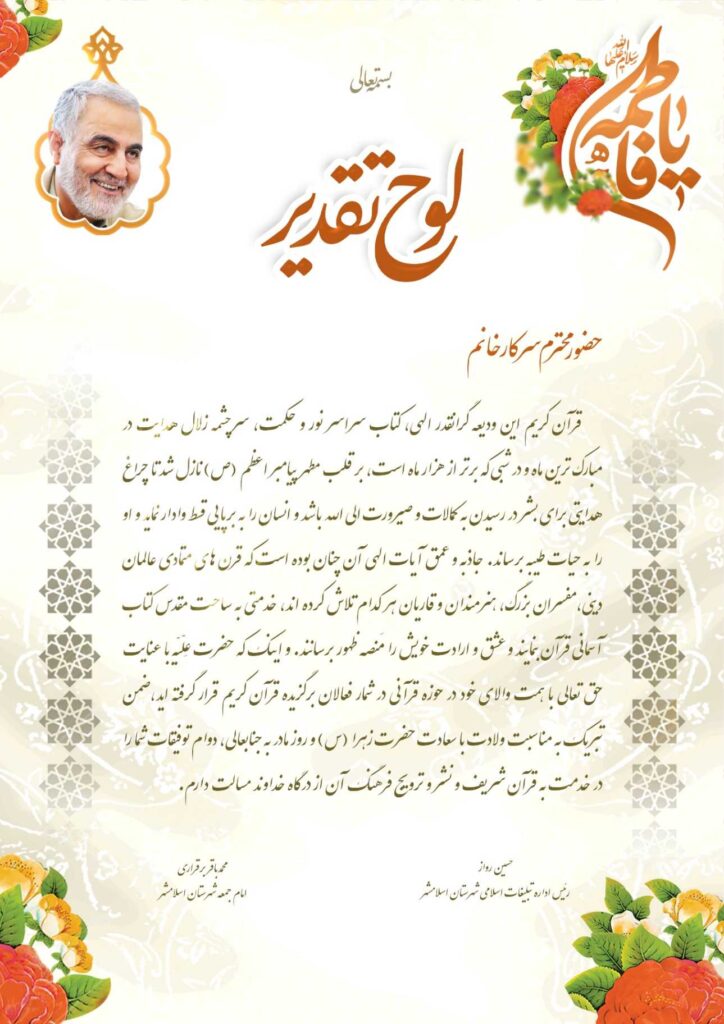 بسمه تعالی
یا فاطمه
سلام الله علیها
لوح تقدیر
حضور محترم سرکار خانم
قرآن کریم این ودیعه گرانقدر الهی، کتاب سراسر نور و حکمت، سرچشمه زلال هدایت در
مبارک ترین ماه و در شبی که برتر از هزار ماه است، بر قلب مطهر پیامبر اعظم (ص) نازل شد تا چراغ
هدایتی برای بشر در رسیدن به کمالات و صیرورت الی الله باشد و انسان را به برپایی قسط وادار نماید و او
را به حیات طیبه برساند. جاذبه و عمق آیات الهی آن چنان بوده است که قرن های متمادی عالمان
دینی، مفسران بزرگ، هنرمندان و قاریان هر کدام تلاش کرده اند، خدمتی به ساحت مقدس کتاب
آسمانی قرآن بنمایند و عشق و ارادت خویش را منصه ظهور برسانند. و اینک که حضرت علیّه با عنایت
حق تعالی با همت والای خود در حوزه قرآنی در شمار فعالان برگزیده قرآن کریم قرار گرفته اید، ضمن
تبریک به مناسبت ولادت با سعادت حضرت زهرا (س) و روز مادر به جنابعالی، دوام توفیقات شما را
در خدمت به قرآن شریف و نشر و ترویج فرهنگ آن از درگاه خداوند مسالت دارم.
حسین رواز
رئیس اداره تبلیغات اسلامی شهرستان اسلامشهر
محمدباقر برقراری
امام جمعه شهرستان اسلامشهر